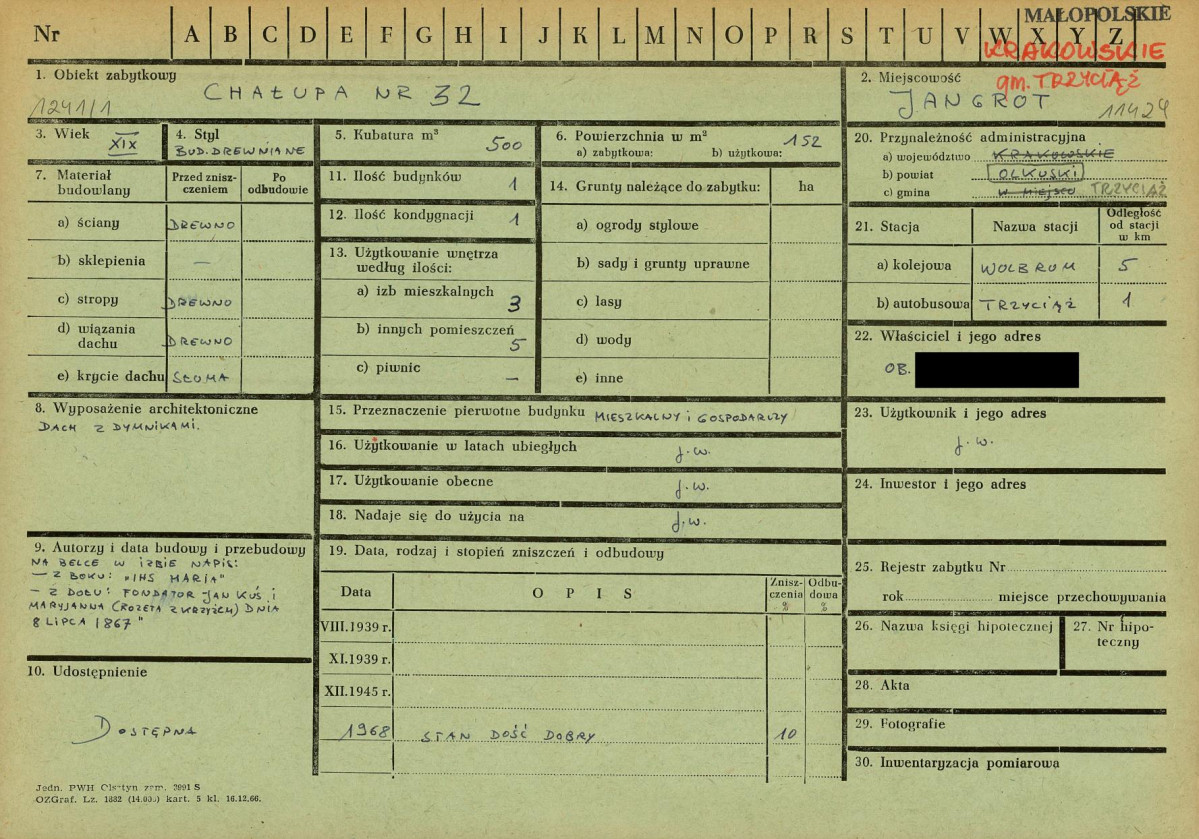 MAŁOPOLSKIE
Nr A B C D E F G H I J K L M N O P R S T U V W X Y Z
KRAKOWSKIE
gm. TRZYCIĄŻ
1. Obiekt zabytkowy
CHAŁUPA NR 32
1241/1
2. Miejscowość
JANGROT
11424
3. Wiek
XIX
4. Styl
BUD. DREWNIANE
5. Kubatura m³
500
6. Powierzchnia w m²
152
a) zabytkowa: b) użytkowa:
7. Materiał budowlany
Przed zniszczeniem
Po odbudowie
a) ściany DREWNO
b) sklepienia —
c) stropy DREWNO
d) wiązania dachu DREWNO
e) krycie dachu SŁOMA
11. Ilość budynków 1
12. Ilość kondygnacji 1
13. Użytkowanie wnętrza
według ilości:
a) izb mieszkalnych 3
b) innych pomieszczeń 5
c) piwnic —
14. Grunty należące do zabytku: ha
a) ogrody stylowe
b) sady i grunty uprawne
c) lasy
d) wody
e) inne
20. Przynależność administracyjna
a) województwo KRAKOWSKIE
b) powiat OLKUSKI
c) gmina W MIEJSCU TRZYCIĄŻ
21. Stacja Nazwa stacji Odległość od stacji w km
a) kolejowa WOLBROM 5
b) autobusowa TRZYCIĄŻ 1
22. Właściciel i jego adres
OB.
8. Wyposażenie architektoniczne
DACH Z DYMNIKAMI.
15. Przeznaczenie pierwotne budynku MIESZKALNY i GOSPODARCZY
16. Użytkowanie w latach ubiegłych j.w.
17. Użytkowanie obecne j.w.
18. Nadaje się do użycia na j.w.
23. Użytkownik i jego adres
j.w.
24. Inwestor i jego adres
9. Autorzy i data budowy i przebudowy
NA BELCE W IZBIE NAPIS:
— Z BOKU: "IHS MARIA"
— Z DOŁU: FONDATOR JAN KUŚ i
MARYJANNA (ROZETA Z KRZYŻEM) DNIA
8 LIPCA 1867"
19. Data, rodzaj i stopień zniszczeń i odbudowy
Data OPIS Zniszczenia % Odbudowa %
VIII.1939 r.
XI.1939 r.
XII.1945 r.
1968 STAN DOŚĆ DOBRY 10
10. Udostępnienie
DOSTĘPNA
25. Rejestr zabytku Nr
rok miejsce przechowywania
26. Nazwa księgi hipotecznej
27. Nr hipoteczny
28. Akta
29. Fotografie
30. Inwentaryzacja pomiarowa
Jedn. PWH Olsztyn zam. 3991 S
OZGraf. Lz. 1882 (14.000) kart. 5 kl. 16.12.66.